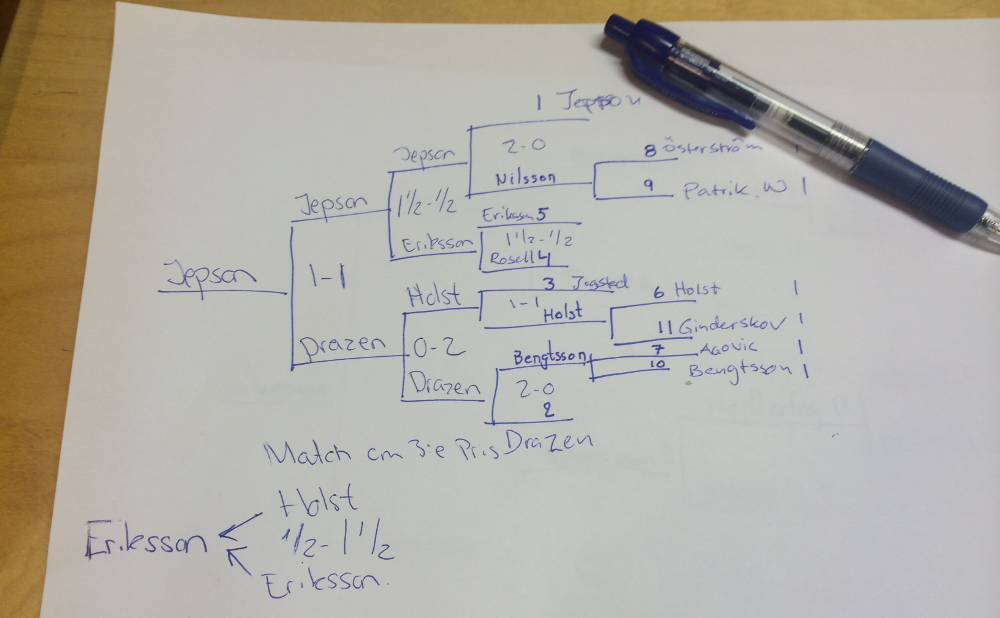 1 Jepson
2-0
8 Österström 1
Jepson
Nilsson
9 Patrik.W 1
Jepson
1½-½
Eriksson 5
1½-½
Eriksson
Rosell 4
Jepson
1-1
3 Jogsted
6 Holst 1
Holst
1-1
Holst
11 Ginderskov 1
Drazen
0-2
7 Agovic 1
Bengtsson
10 Bengtsson 1
Drazen
2-0
2
Match om 3:e Pris Drazen
Holst
Eriksson
½-1½
Eriksson.